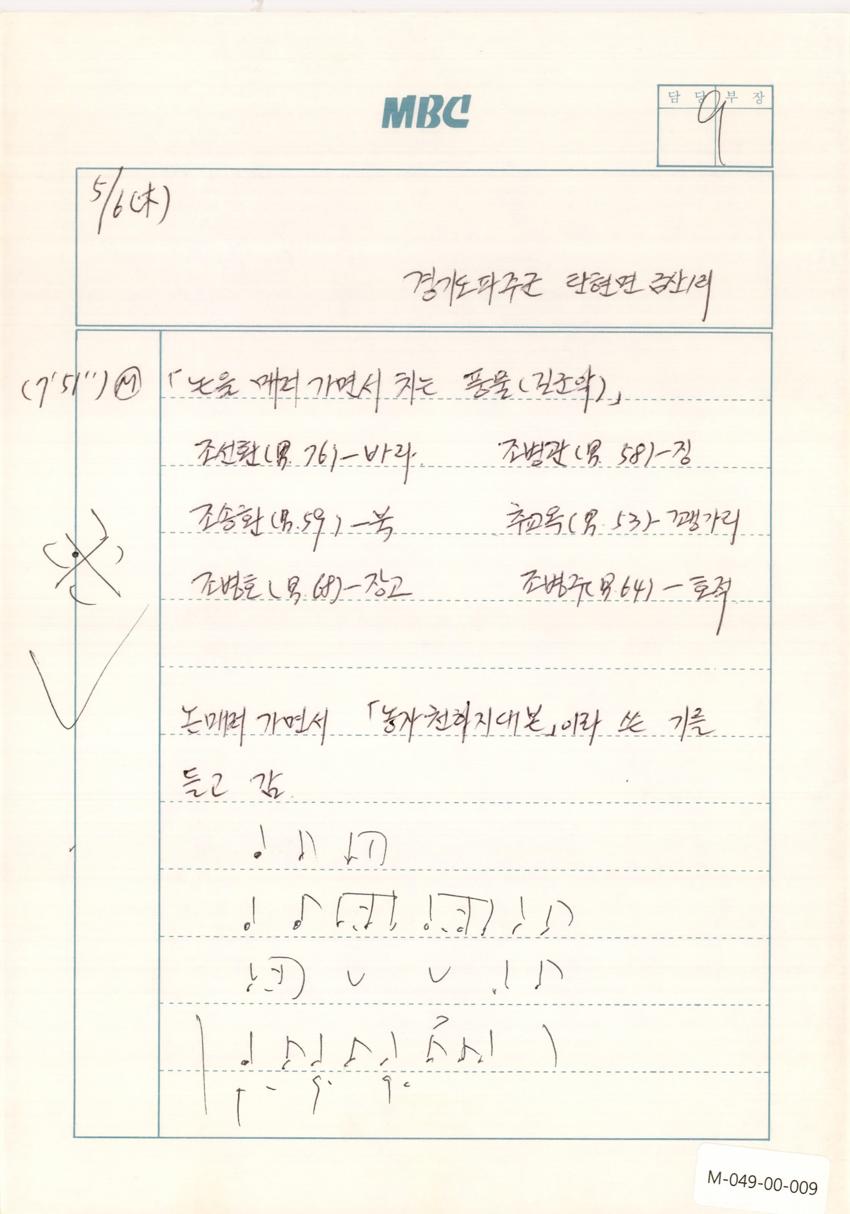 MBC
담 당 부 장
9
5/6(木)
경기도파주군 탄현면 금산1리
(7'51") Ⓜ 「논을 매러 가면서 치는 풍물(길군악)」
조선환(男.76)-바라 조병관(男.58)-징
조송환(男.59)-북 추교옥(男.53)-꽹가리
조병호(男.68)-장고 조병주(男.64)-호적
논매러 가면서 「농자천하지대본」이라 쓴 기를
들고 감
M-049-00-009